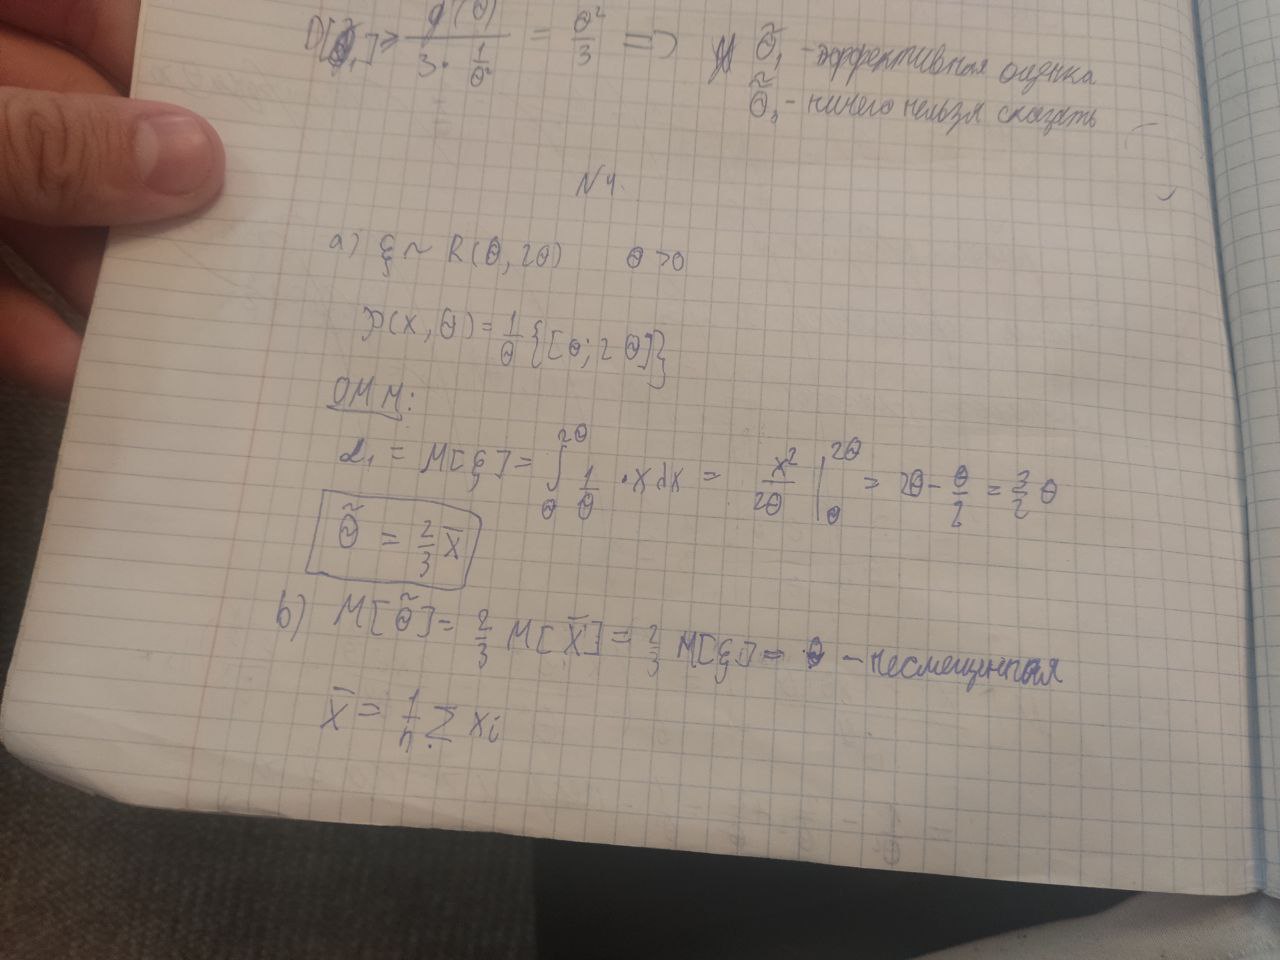 D[θ̃₁] ≥ φ'(θ) / (3 · 1/θ²) = θ²/3 => θ̃₁ - эффективная оценка
θ̃₂ - ничего нельзя сказать
N4.
a) ξ ~ R(θ, 2θ) θ > 0
p(x, θ) = 1/θ {[θ; 2θ]}
ОММ:
α₁ = M[ξ] = ∫_θ^{2θ} 1/θ · x dx = x²/2θ |_θ^{2θ} = 2θ - θ/2 = 3/2 θ
θ̃ = 2/3 x̄
b) M[θ̃] = 2/3 M[x̄] = 2/3 M[ξ] = θ - несмещенная
x̄ = 1/n Σ xᵢ